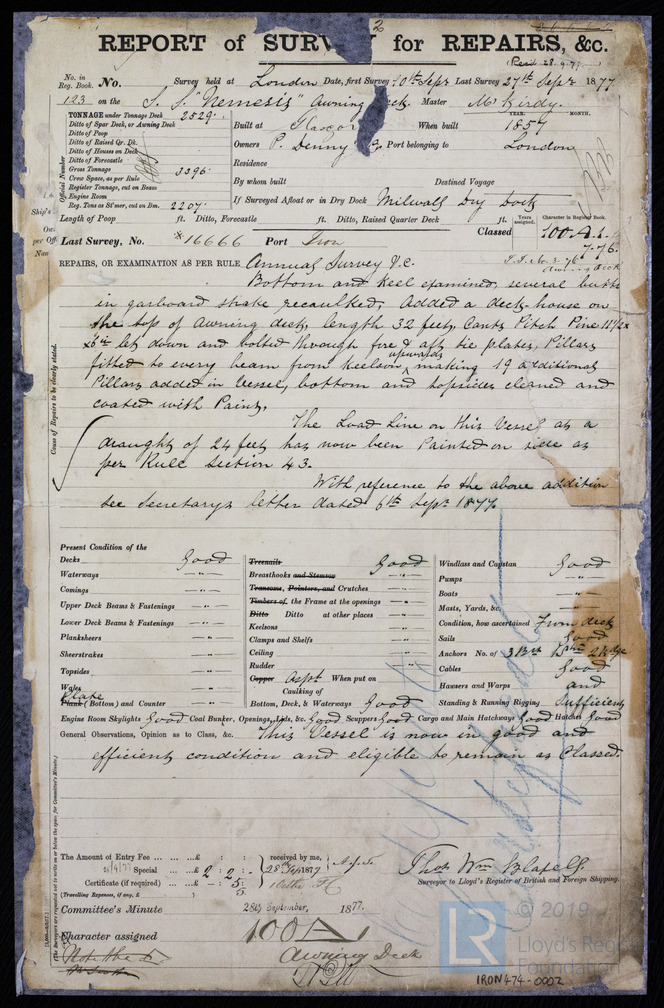 2
REPORT of SURV for REPAIRS, &c.
(Recd 28.9.77.
No. in Reg. Book. No. Survey held at London Date, first Survey 10th Sept Last Survey 27th Sept 1877
123 on the S.S. "Nemesis" Awning Deck. Master McKirdy.
TONNAGE under Tonnage Deck 2529.
Ditto of Spar Deck, or Awning Deck
Ditto of Poop
Ditto of Raised Qr. Dk.
Ditto of Houses on Deck
Ditto of Forecastle
Gross Tonnage 3396.
Crew Space, as per Rule
Register Tonnage, cut on Beam
Engine Room
Reg. Tons as St'mer, cut on Bm. 2207.
Official Number
YEAR. MONTH.
Built at Glasgow When built 1857
Owners P. Denny Port belonging to London
Residence
By whom built Destined Voyage
If Surveyed Afloat or in Dry Dock Millwall Dry Dock
Length of Poop ft. Ditto, Forecastle ft. Ditto, Raised Quarter Deck ft.
Years assigned. Character in Register Book.
Classed 100.A.1.
7-76.
Awning Deck
Last Survey, No. *16666 Port Iron
REPAIRS, OR EXAMINATION AS PER RULE Annual Survey &c.
Bottom and keel examined, several butts
in garboard strake recaulked; Added a deck-house on
the top of awning deck, length 32 feet, Cants Pitch Pine 11½ x
x6in let down and bolted through fore & aft tie plates, Pillars
fitted to every beam from keelson upwards, making 19 additional
Pillars added in Vessel, bottom and topsides cleaned and
coated with Paint.
The Load Line on this Vessel at a
draught of 24 feet has now been Painted on side as
per Rule Section 43.
With reference to the above addition
see Secretarys letter dated 6th Sept 1877.
Cause of Repairs to be clearly stated.
Present Condition of the
Decks Good
Waterways -"-
Comings -"-
Upper Deck Beams & Fastenings -"-
Lower Deck Beams & Fastenings -"-
Planksheers -"-
Sheerstrakes -"-
Topsides -"-
Wales -"-
Plate
Plank (Bottom) and Counter -"-
Treenails Good
Breasthooks and Stemson -"-
Transoms, Pointers, and Crutches -"-
Timbers of the Frame at the openings -"-
Ditto Ditto at other places -"-
Keelsons -"-
Clamps and Shelfs -"-
Ceiling -"-
Rudder -"-
Copper When put on
Caulking of
Bottom, Deck, & Waterways Good
Windlass and Capstan Good
Pumps -"-
Boats -"-
Masts, Yards, &c. -"-
Condition, how ascertained From deck
Sails Good
Anchors No. of
Cables Good
Hawsers and Warps and
Standing & Running Rigging Sufficient
Engine Room Skylights Good Coal Bunker, Openings, Lids, &c. Good Scuppers Good Cargo and Main Hatchways Good Hatches Good
General Observations, Opinion as to Class, &c. This Vessel is now in good and
efficient condition and eligible to remain as Classed.
The Amount of Entry Fee £ : : received by me,
Special £ 2 : 2 : - 28th Sept 1877
Certificate (if required) £ - : 5 : 5
(Travelling Expenses, if any, £ )
Thos Wm Blabell
Surveyor to Lloyd's Register of British and Foreign Shipping.
Committee's Minute 28th September, 1877.
Character assigned 100A1
Awning Deck
Note the
© 2019
LR
Lloyd's Reg
Foundation
IRON474-0002